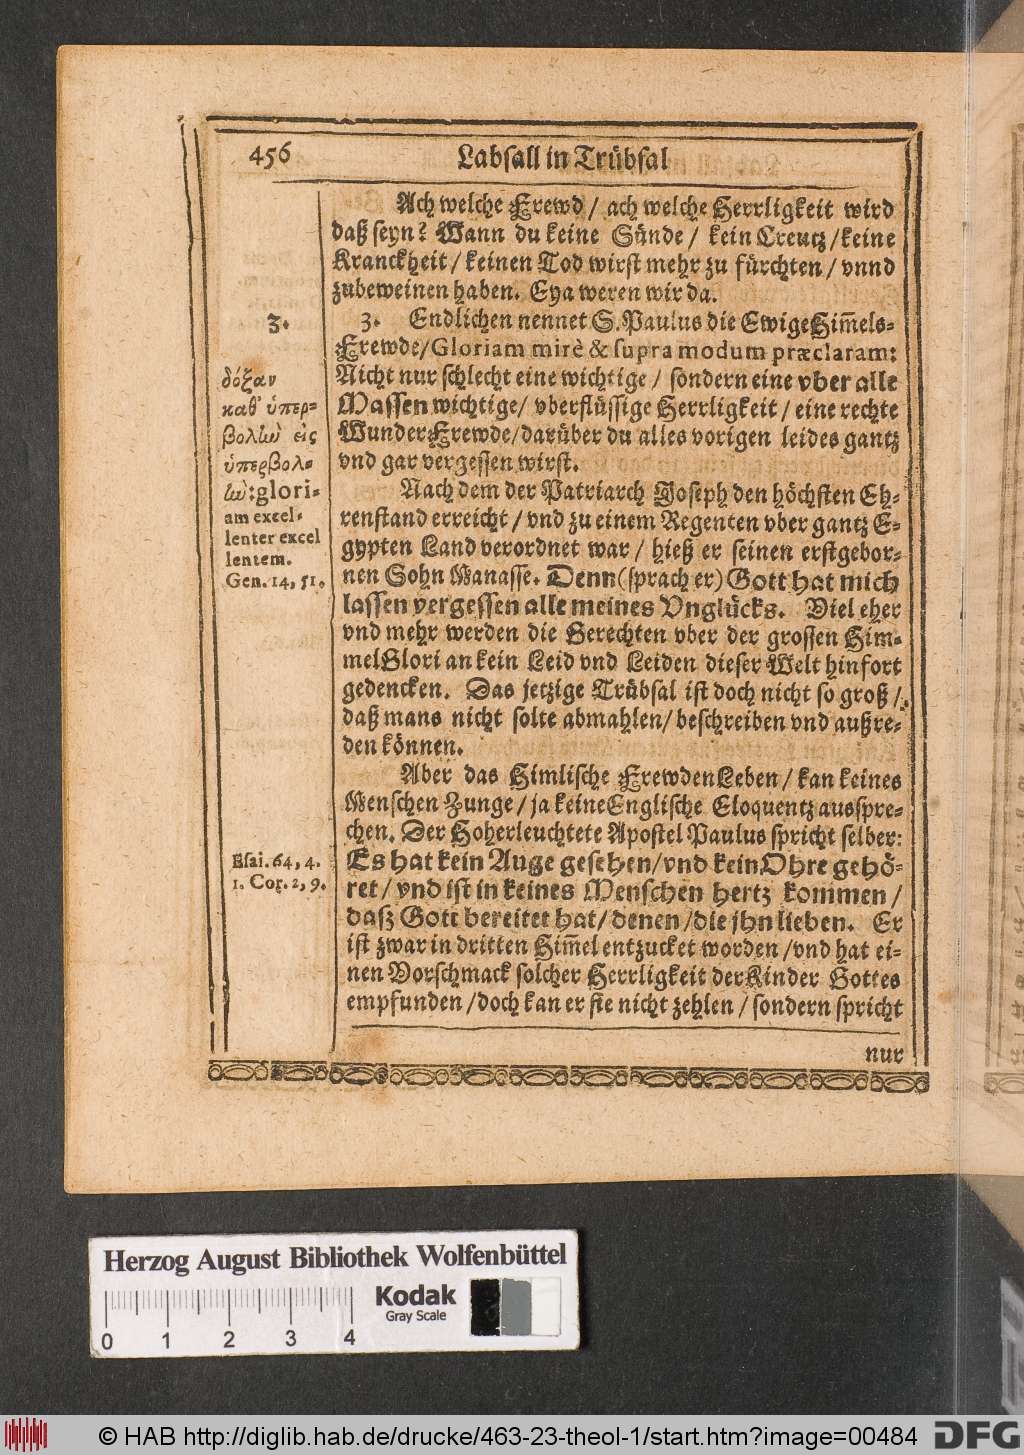 456 Labſall in Trübſal
Ach welche Frewd / ach welche Herrligkeit wird
daß ſeyn? Wann du keine Sünde / kein Creutz / keine
Kranckheit / keinen Tod wirſt mehr zu fürchten / vnnd
zubeweinen haben. Eya weren wir da.
3.
3. Endlichen nennet S. Paulus die Ewige Him̄els-
Frewde / Gloriam mirè & ſupra modum præclaram:
δόξαν
καθ' ὑπερ-
βολὴν εἰς
ὑπερβολ-
ὴν: glori-
am excel-
lenter excel
lentem.
Gen. 14, 51.
Nicht nur ſchlecht eine wichtige / ſondern eine vber alle
Maſſen wichtige / vberflüſſige Herrligkeit / eine rechte
Wunder Frewde / darüber du alles vorigen leides gantz
vnd gar vergeſſen wirſt.
Nach dem der Patriarch Joſeph den höchſten Eh-
renſtand erreicht / vnd zu einem Regenten vber gantz E-
gypten Land verordnet war / hieß er ſeinen erſtgebor-
nen Sohn Manaſſe. Denn (ſprach er) Gott hat mich
laſſen vergeſſen alle meines Vnglücks. Viel eher
vnd mehr werden die Gerechten vber der groſſen Him-
mel Glori an kein Leid vnd Leiden dieſer Welt hinfort
gedencken. Das jetzige Trübſal iſt doch nicht ſo groß /
daß mans nicht ſolte abmahlen / beſchreiben vnd außre-
den können.
Aber das Himliſche Frewden Leben / kan keines
Menſchen Zunge / ja keine Engliſche Eloquentz ausſpre-
chen. Der Hoherleuchtete Apoſtel Paulus ſpricht ſelber:
Eſai. 64, 4.
1. Cor. 2, 9.
Es hat kein Auge geſehen / vnd kein Ohre gehö-
ret / vnd iſt in keines Menſchen hertz kommen /
daſz Gott bereitet hat / denen / die jhn lieben. Er
iſt zwar in dritten Him̄el entzucket worden / vnd hat ei-
nen Vorſchmack ſolcher Herrligkeit der Kinder Gottes
empfunden / doch kan er ſie nicht zehlen / ſondern ſpricht
nur
Herzog August Bibliothek Wolfenbüttel
Kodak
Gray Scale
0 1 2 3 4
© HAB http://diglib.hab.de/drucke/463-23-theol-1/start.htm?image=00484
DFG